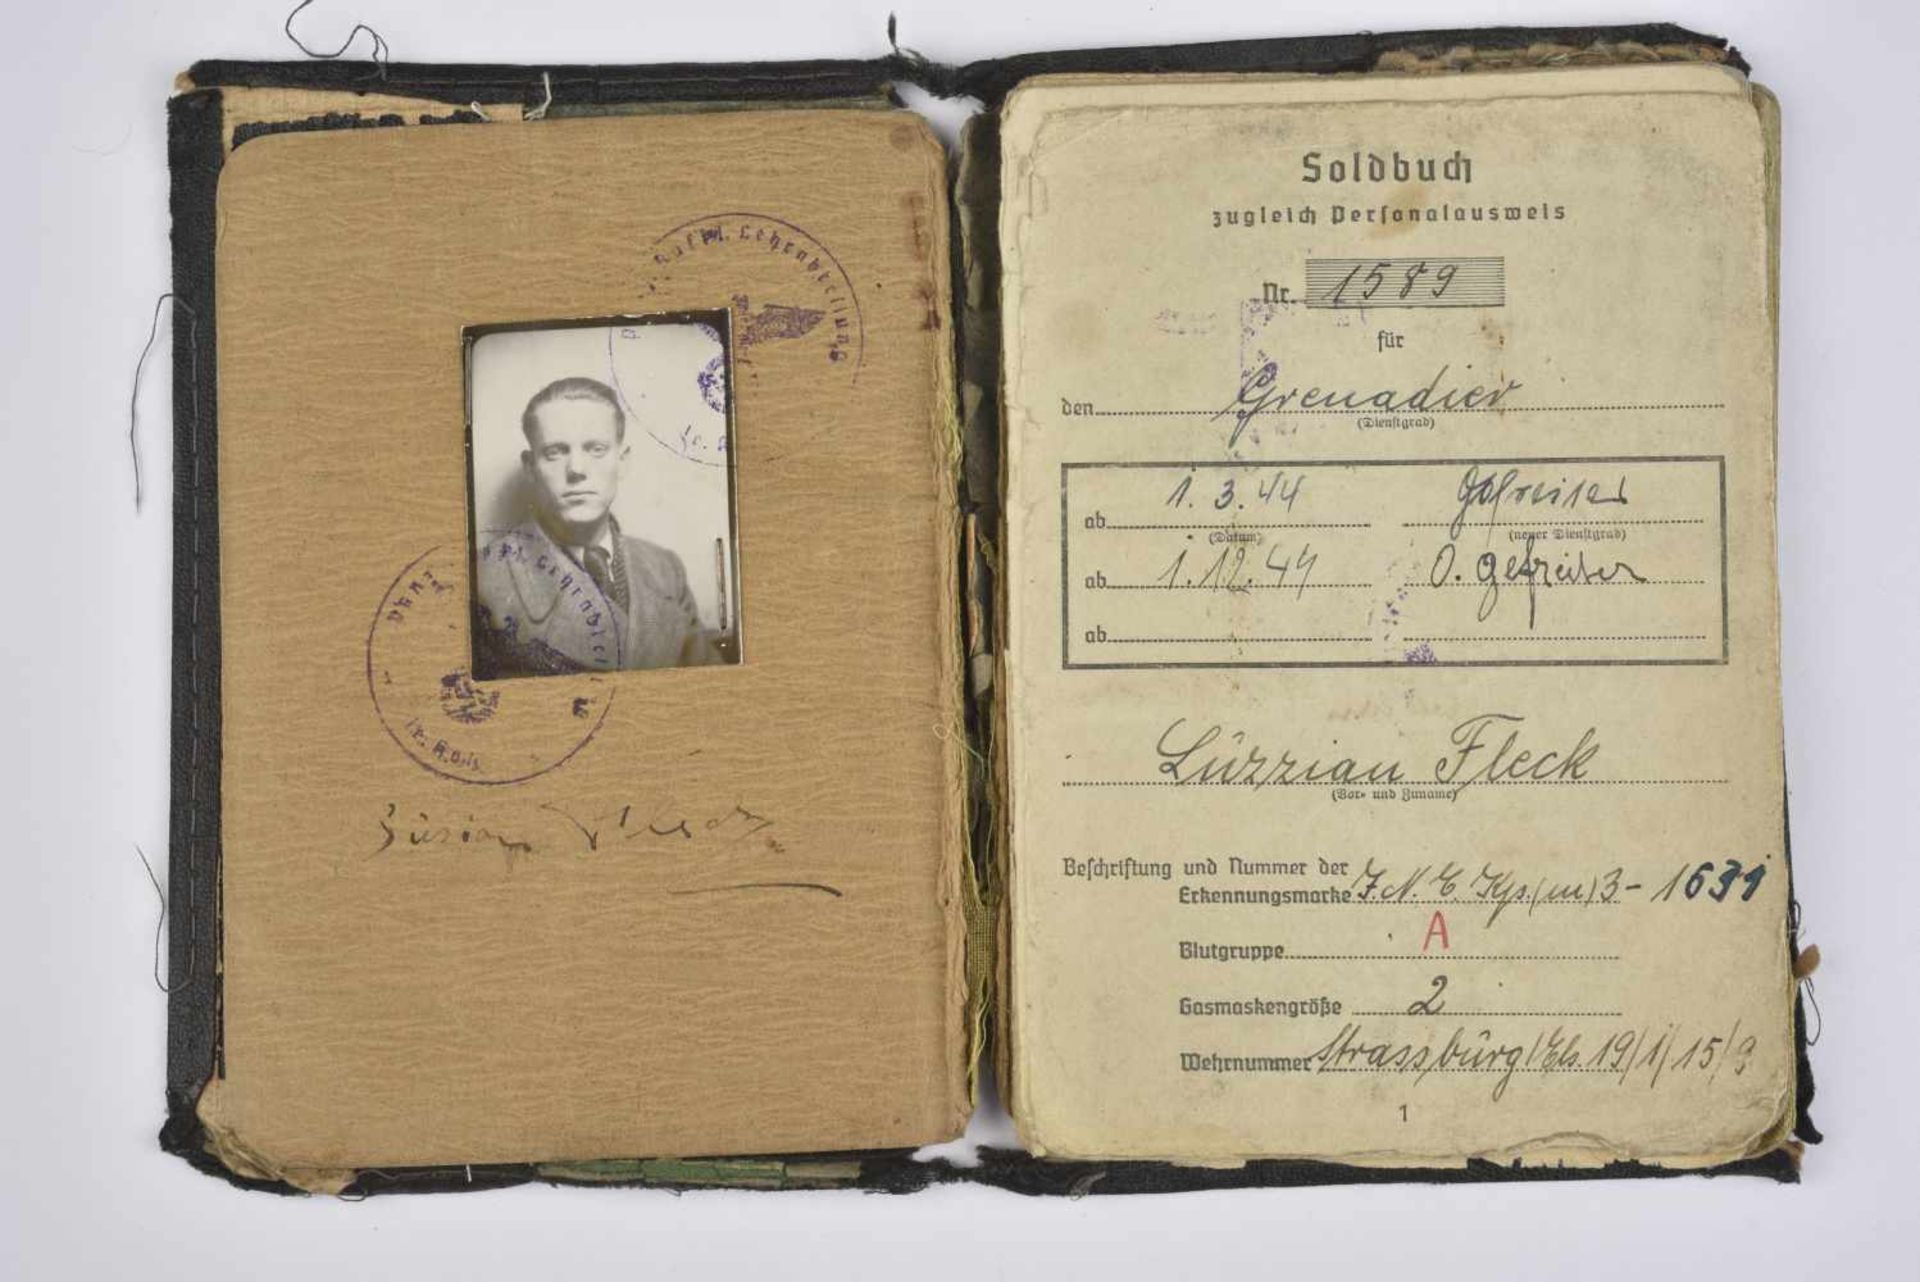 Lehrabteilung
Lehrabteilung
Soldbuch
zugleich Personalausweis
Nr. 1589
für
den Grenadier
(Dienstgrad)
ab 1. 3. 44 Gefreiter
(Datum) (neuer Dienstgrad)
ab 1. 12. 44 O. Gefreiter
ab
Lüzzian Fleck
(Vor- und Zuname)
Beschriftung und Nummer der
Erkennungsmarke J. N. E. Kp. (m) 3 - 1631
Blutgruppe A
Gasmaskengröße 2
Wehrnummer Strassbürg/Els. 19/1/15/9
1